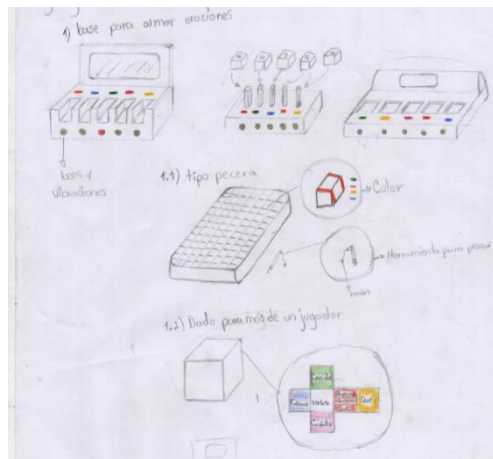 1) base para armar oraciones
luces y
vibradores
1.1) tipo pecera
Color
Herramienta para pescar
imán
1.2) Dado para más de un jugador
LOGO